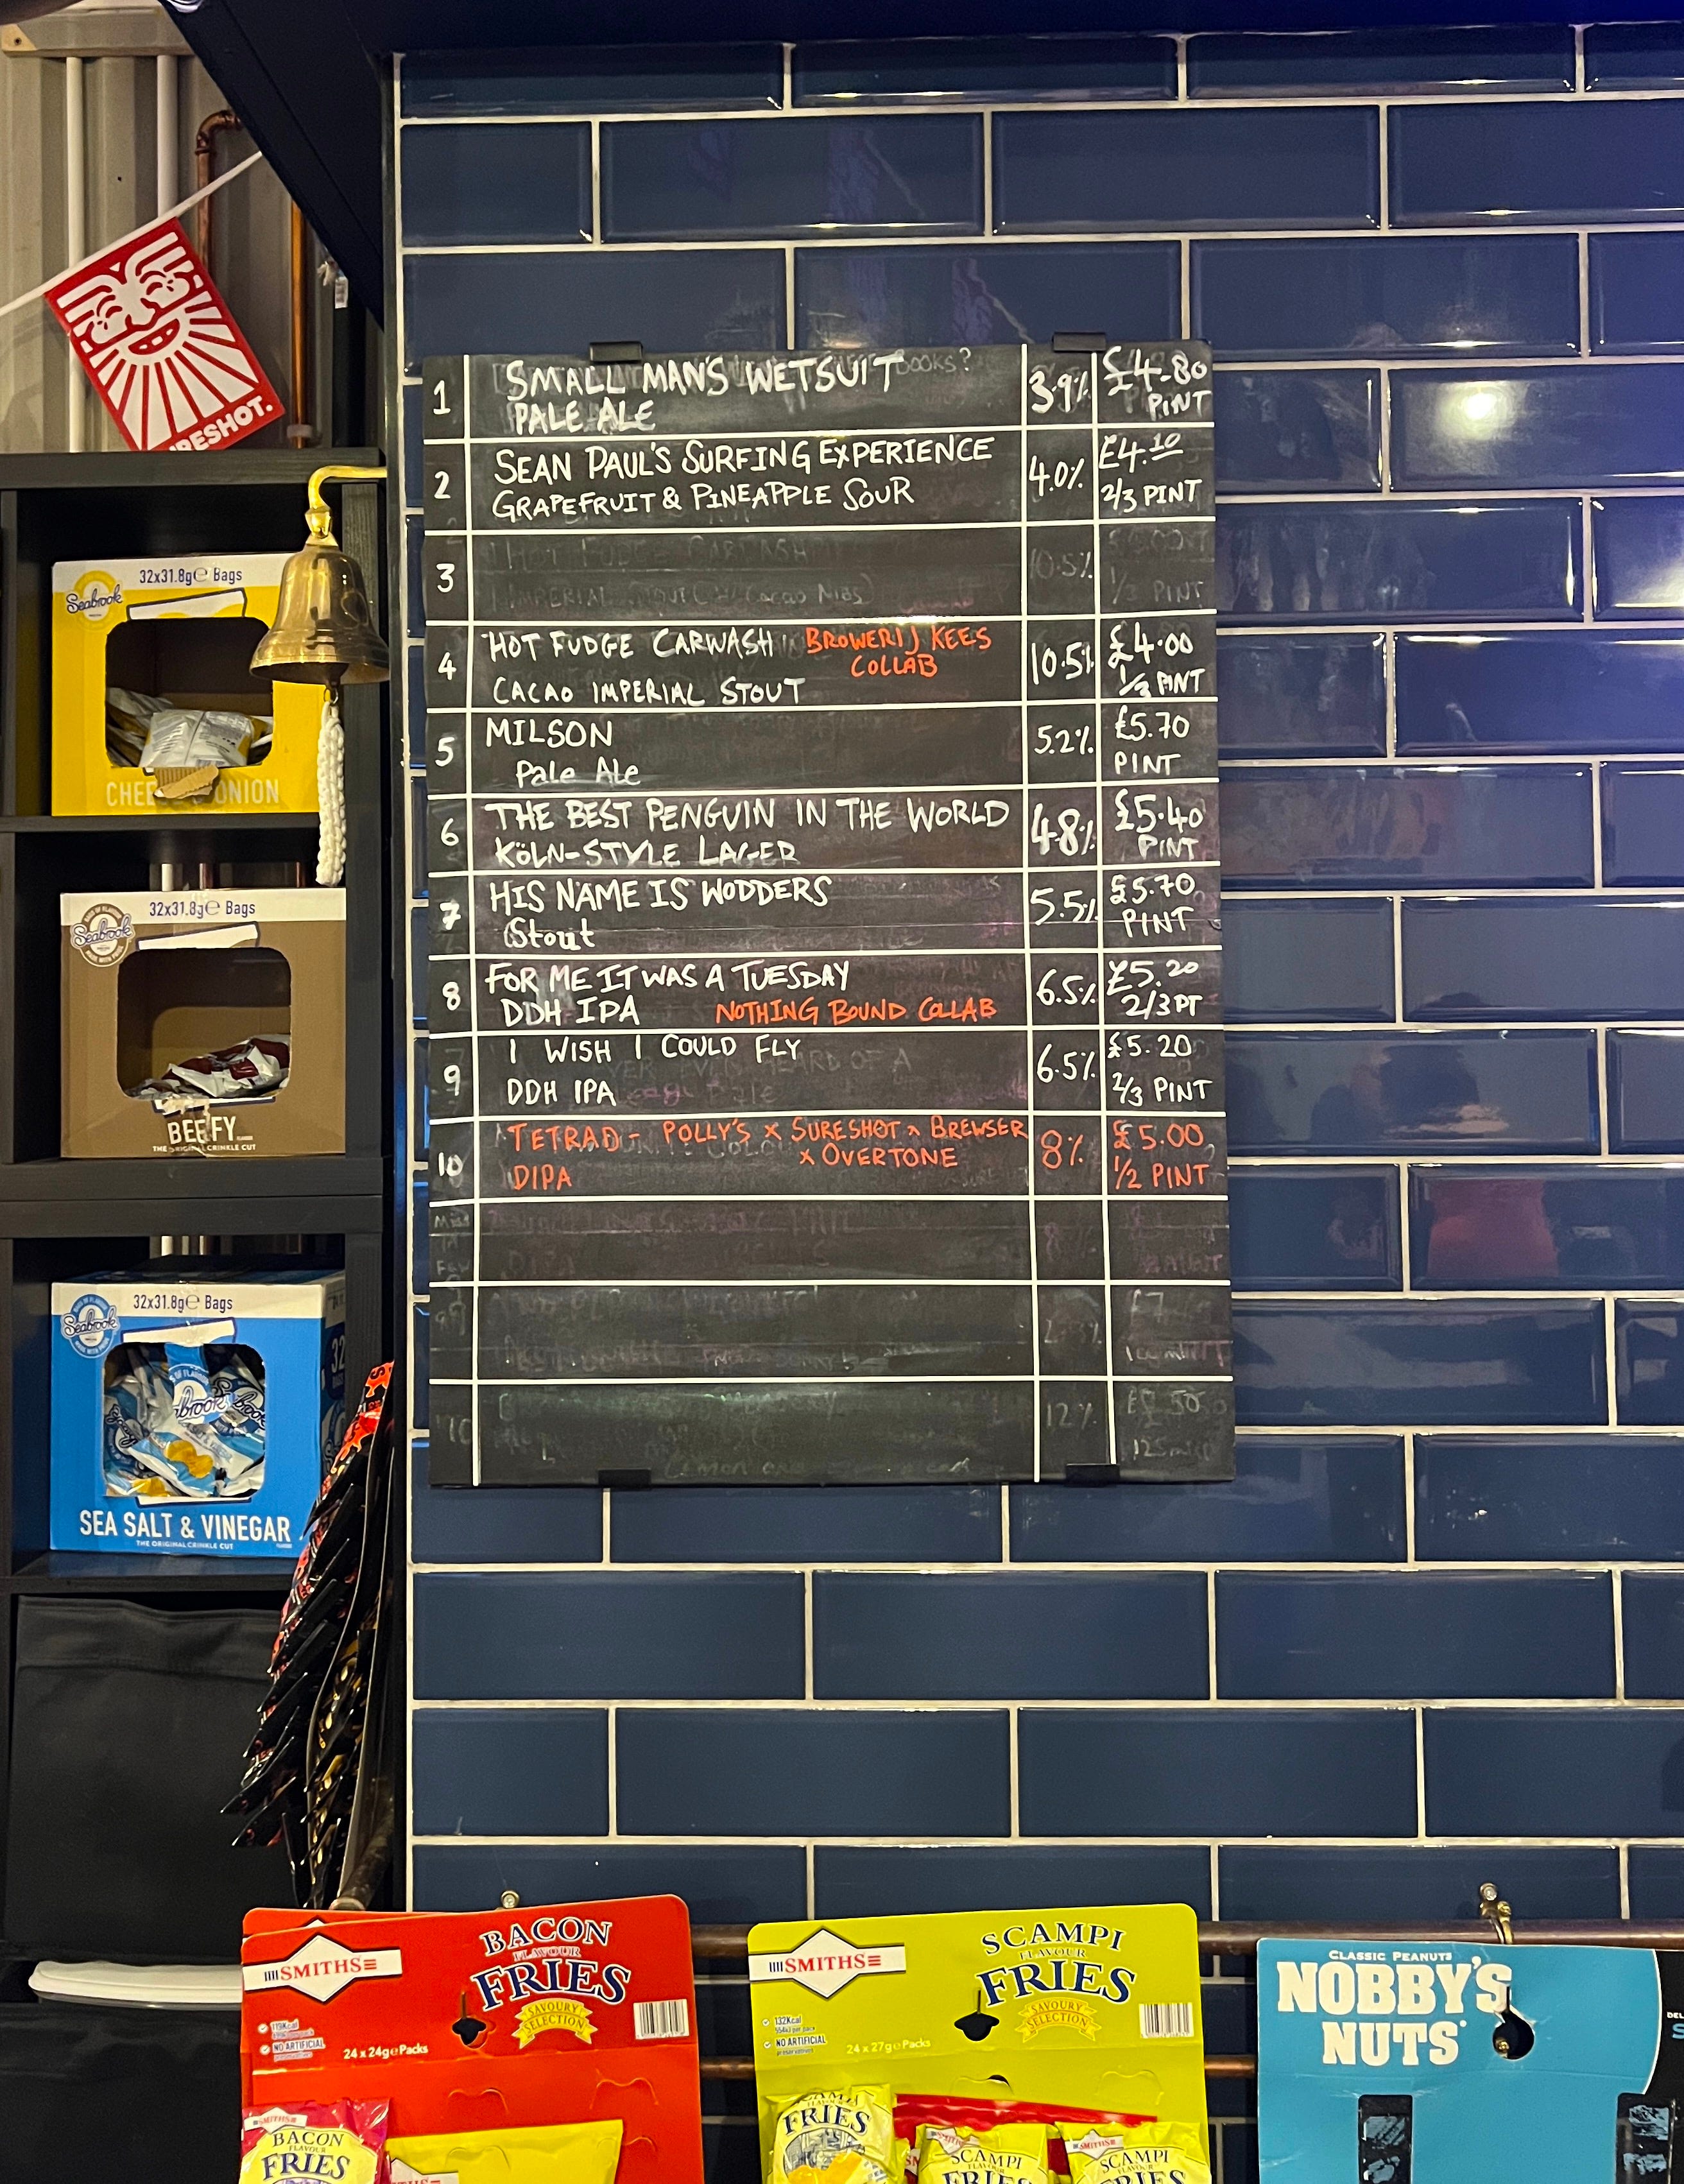 RESHOT.
1 SMALL MAN'S WETSUIT BOOKS? 3.9% £4.80
PALE ALE PINT
2 SEAN PAUL'S SURFING EXPERIENCE 4.0% £4.10
GRAPEFRUIT & PINEAPPLE SOUR 2/3 PINT
3 HOT FUDGE CARWASH 10.5%
Cacao Nibs 1/3 PINT
4 HOT FUDGE CARWASH BROWERIJ KEES 10.5% £4.00
COLLAB
CACAO IMPERIAL STOUT 1/3 PINT
5 MILSON 5.2% £5.70
Pale Ale PINT
6 THE BEST PENGUIN IN THE WORLD 4.8% £5.40
KÖLN-STYLE LAGER PINT
7 HIS NAME IS WODDERS 5.5% £5.70
Stout PINT
8 FOR ME IT WAS A TUESDAY 6.5% £5.20
DDH IPA NOTHING BOUND COLLAB 2/3 PT
9 I WISH I COULD FLY 6.5% £5.20
DDH IPA 2/3 PINT
10 TETRAD - POLLY'S x SURESHOT x BREWSER 8% £5.00
x OVERTONE
DIPA 1/2 PINT
12%
32x31.8g℮ Bags
Seabrook
CHEESE & ONION
32x31.8g℮ Bags
Seabrook
BEEFY
THE ORIGINAL CRINKLE CUT
32x31.8g℮ Bags
Seabrook
32
SEA SALT & VINEGAR
THE ORIGINAL CRINKLE CUT
SMITHS
BACON
FLAVOUR
FRIES
SAVOURY
SELECTION
119Kcal
NO ARTIFICIAL
24 x 24g℮ Packs
SMITHS
BACON
FLAVOUR
FRIES
SMITHS
SMITHS
SCAMPI
FLAVOUR
FRIES
SAVOURY
SELECTION
132Kcal
NO ARTIFICIAL
24 x 27g℮ Packs
SCAMPI
FRIES
SMITHS
SCAMPI
FLAVOUR
FRIES
SMITHS
SCAMPI
FLAVOUR
FRIES
CLASSIC PEANUTS
NOBBY'S
NUTS